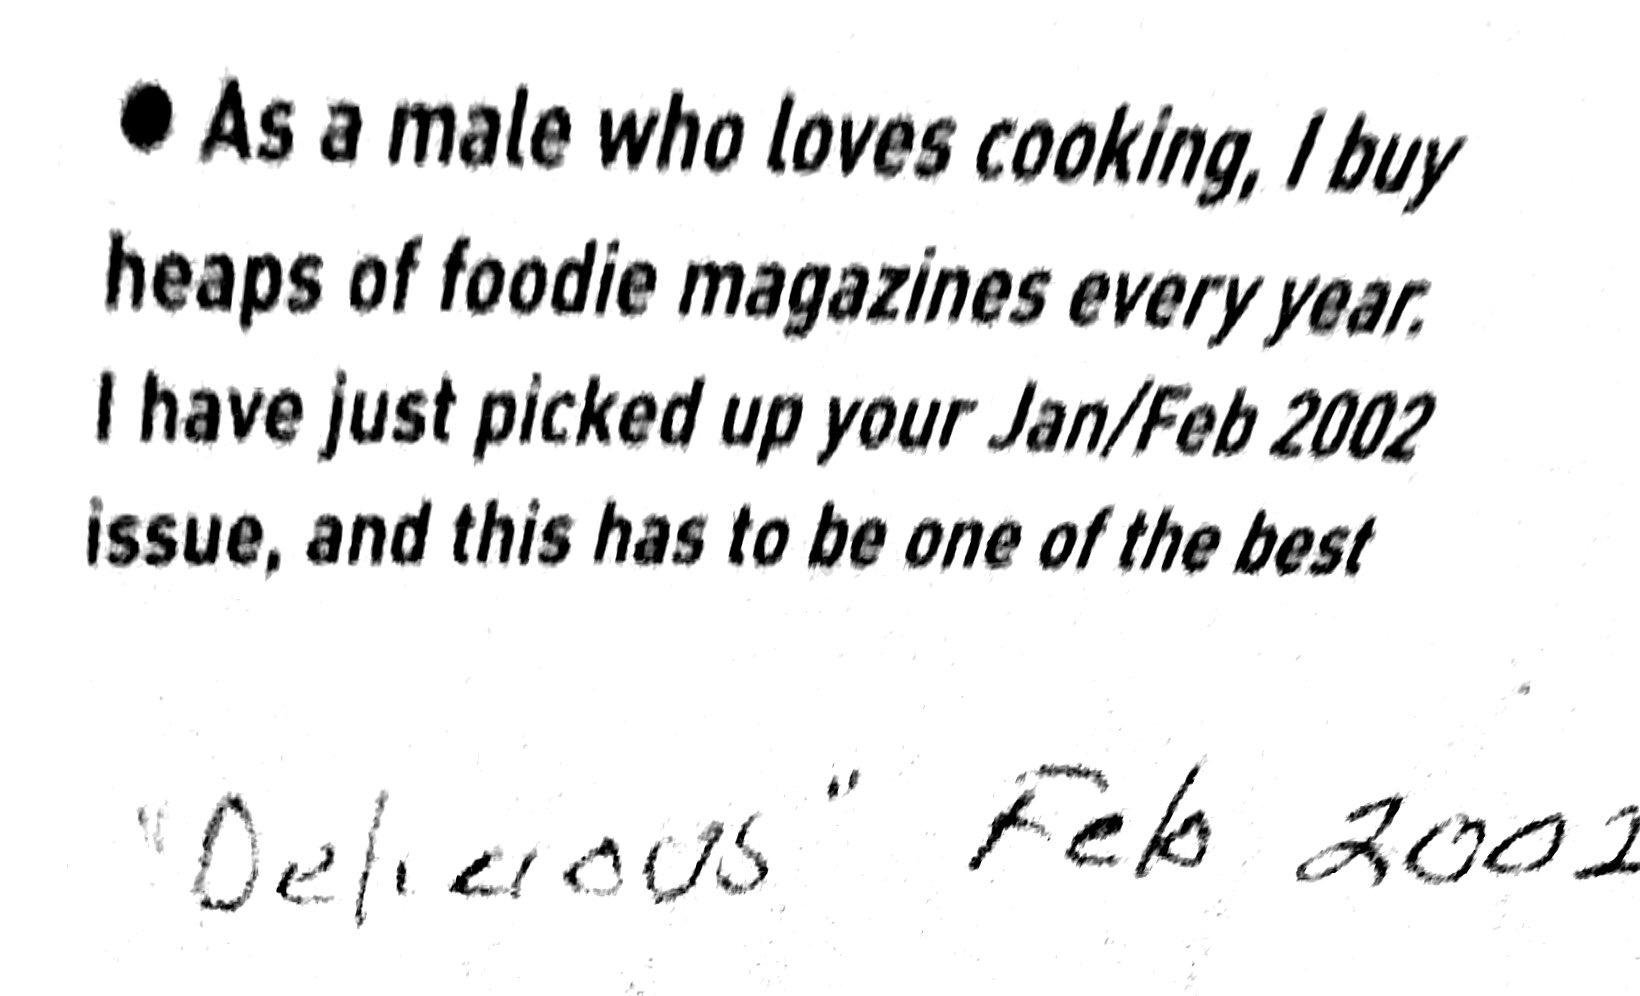 ● As a male who loves cooking, I buy
heaps of foodie magazines every year.
I have just picked up your Jan/Feb 2002
issue, and this has to be one of the best
"Delicious" Feb 2002